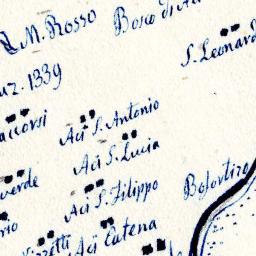 M. Rosso
Bosco di
S. Leonard
uz. 1339
accorsi
Aci S. Antonio
Aci S. Lucia
verde
Aci S. Filippo
rio
zzetti
Aci Catena